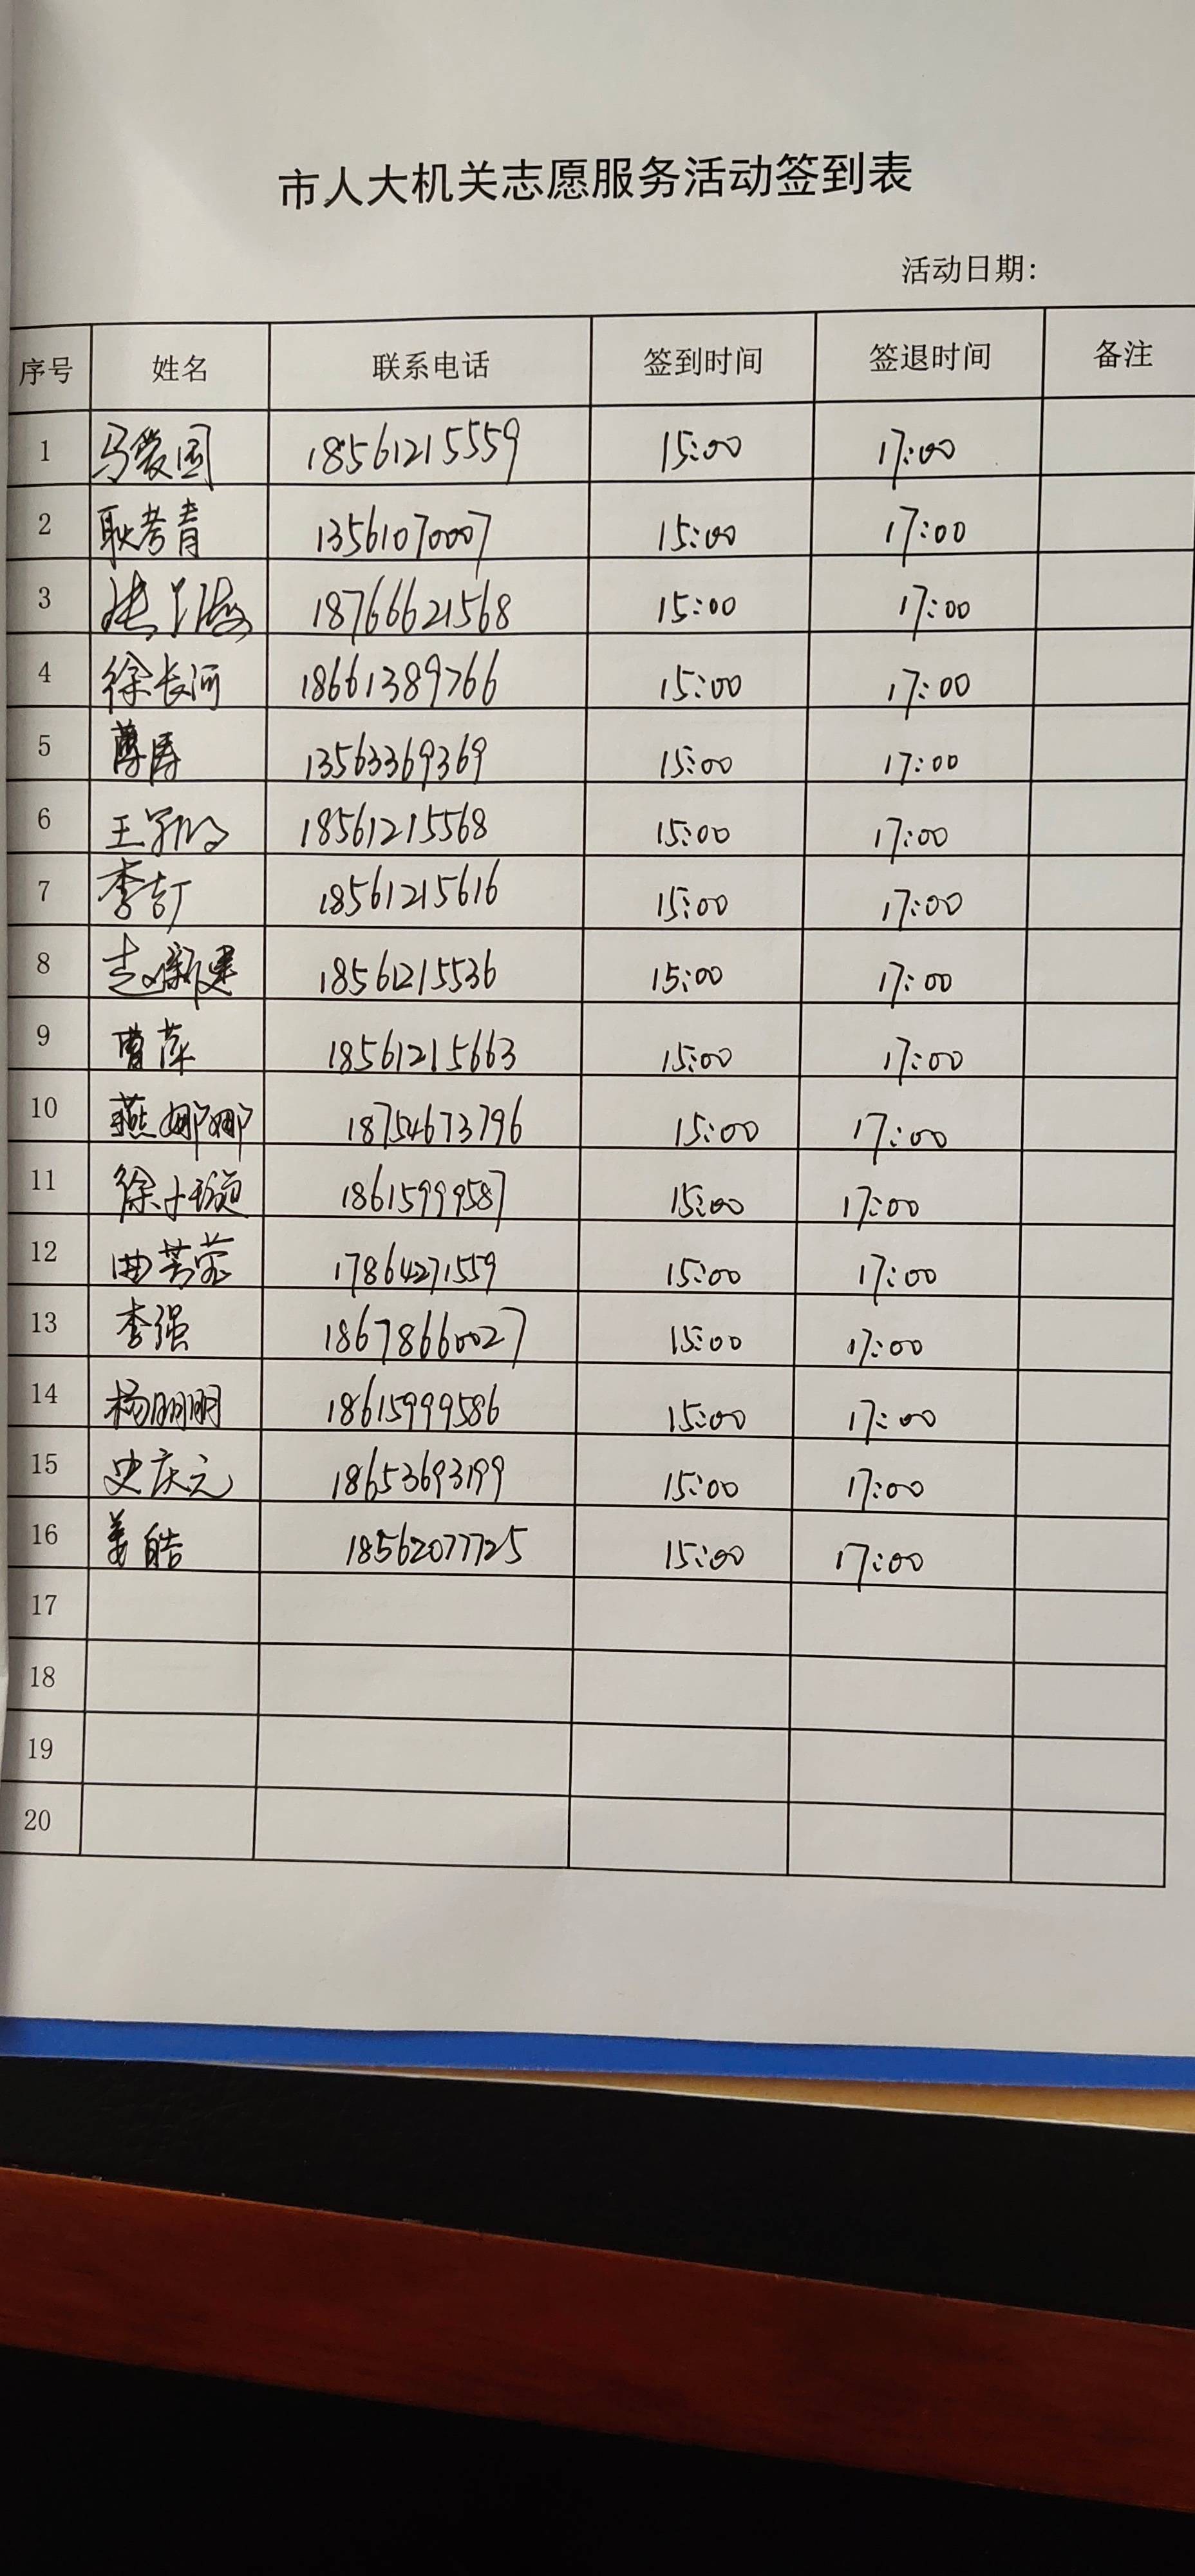 市人大机关志愿服务活动签到表
活动日期:
序号 姓名 联系电话 签到时间 签退时间 备注
1 马爱国 18561215559 15:00 17:00
2 耿考青 13561070007 15:00 17:00
3 18766621568 15:00 17:00
4 徐长河 18661389766 15:00 17:00
5 薄涛 13563369369 15:00 17:00
6 王 18561215568 15:00 17:00
7 李 18561215616 15:00 17:00
8 赵新建 18561215536 15:00 17:00
9 曹萍 18561215663 15:00 17:00
10 燕娜娜 18754673796 15:00 17:00
11 徐小璇 18615999587 15:00 17:00
12 曲芳蓉 17864271559 15:00 17:00
13 李强 18678660027 15:00 17:00
14 杨明明 18615999586 15:00 17:00
15 史庆元 18653693199 15:00 17:00
16 姜皓 18562077725 15:00 17:00
17
18
19
20